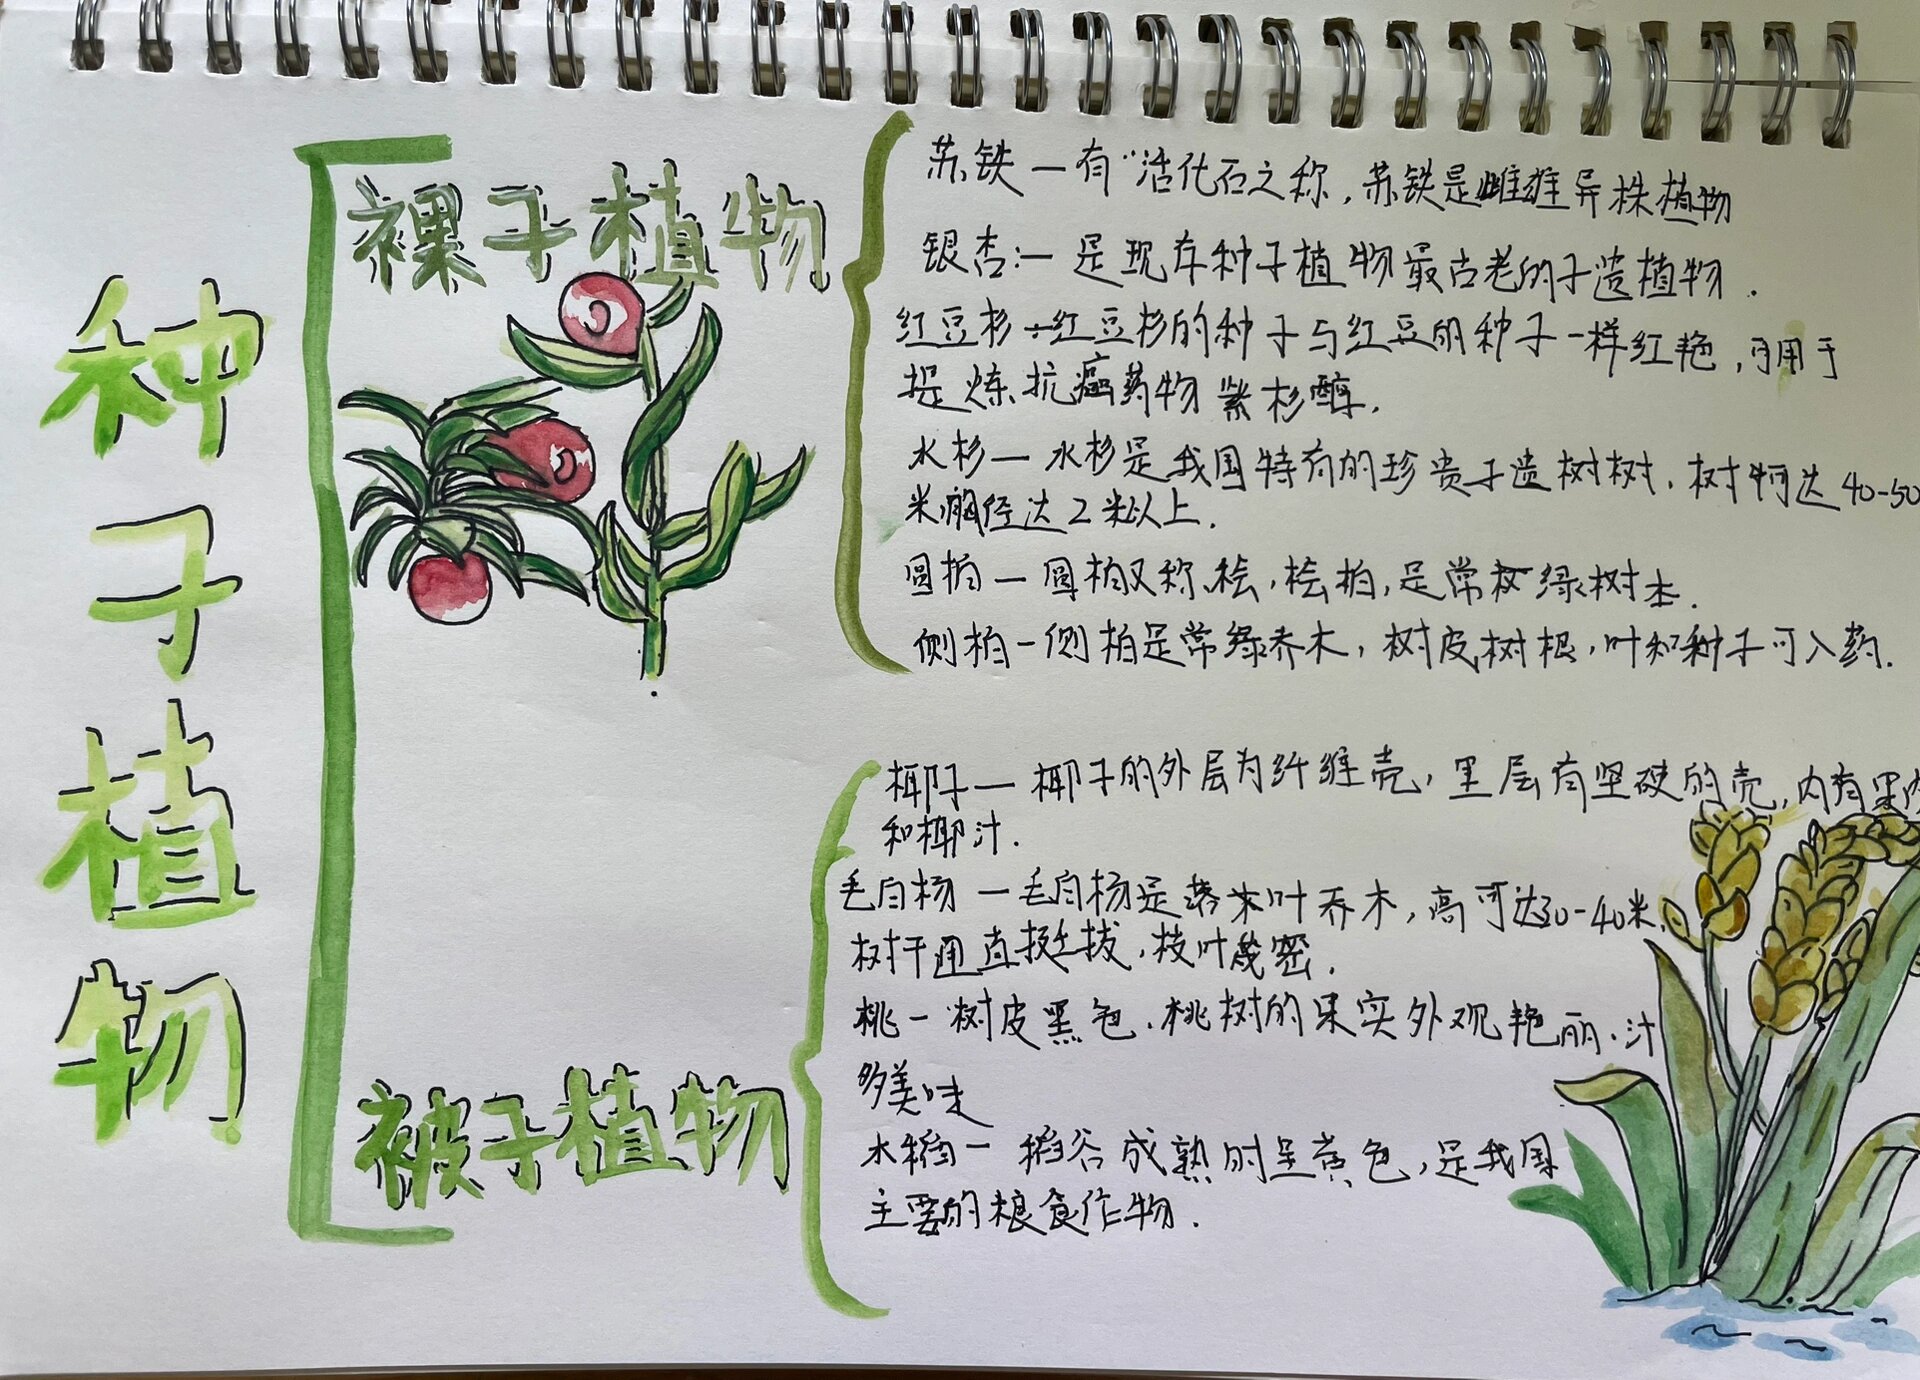 种子植物
裸子植物
苏铁一有“活化石之称，苏铁是雌雄异株植物
银杏：一是现存种子植物最古老的孑遗植物．
红豆杉÷红豆杉的种子与红豆的种子一样红艳，可用于
提炼抗癌药物紫杉醇．
水杉一水杉是我国特有的珍贵孑遗树树．树 可达40-50
米，胸径达2米以上．
圆柏一圆柏又称桧，桧柏，是常 绿树木．
侧柏一侧柏是常绿乔木，树皮，树根，叶和种子可入药．
椰子一椰子的外层为纤维壳，里层有坚硬的壳，内有果肉
和椰汁．
毛白杨一毛白杨是落 叶乔木，高可达30-40米．
树干通直挺拔，枝叶茂密．
桃一树皮黑色．桃树的果实外观艳丽．汁
多美味
被子植物
水稻一稻谷成熟时呈黄色，是我国
主要的粮食作物．